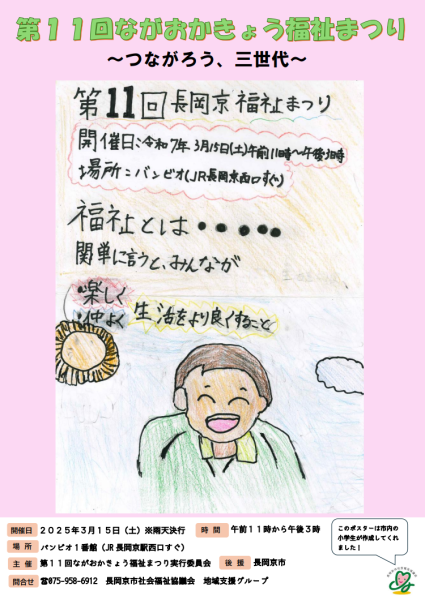 第11回ながおかきょう福祉まつり
～つながろう、三世代～
第11回長岡京福祉まつり
開催日:令和7年3月15日(土)午前11時～午後3時
場所:バンビオ(JR長岡京西口すぐ)
福祉とは・・・・・
関単に言うと、みんなが
・楽しく
・仲よく 生活をより良くすること
開催日 2025年3月15日（土）※雨天決行 時間 午前11時から午後3時
場所 バンビオ1番館（JR長岡京駅西口すぐ）
主催 第11回ながおかきょう福祉まつり実行委員会 後援 長岡京市
問合せ ☎075-958-6912 長岡京市社会福祉協議会 地域支援グループ
このポスターは市内の
小学生が作成してくれ
ました！